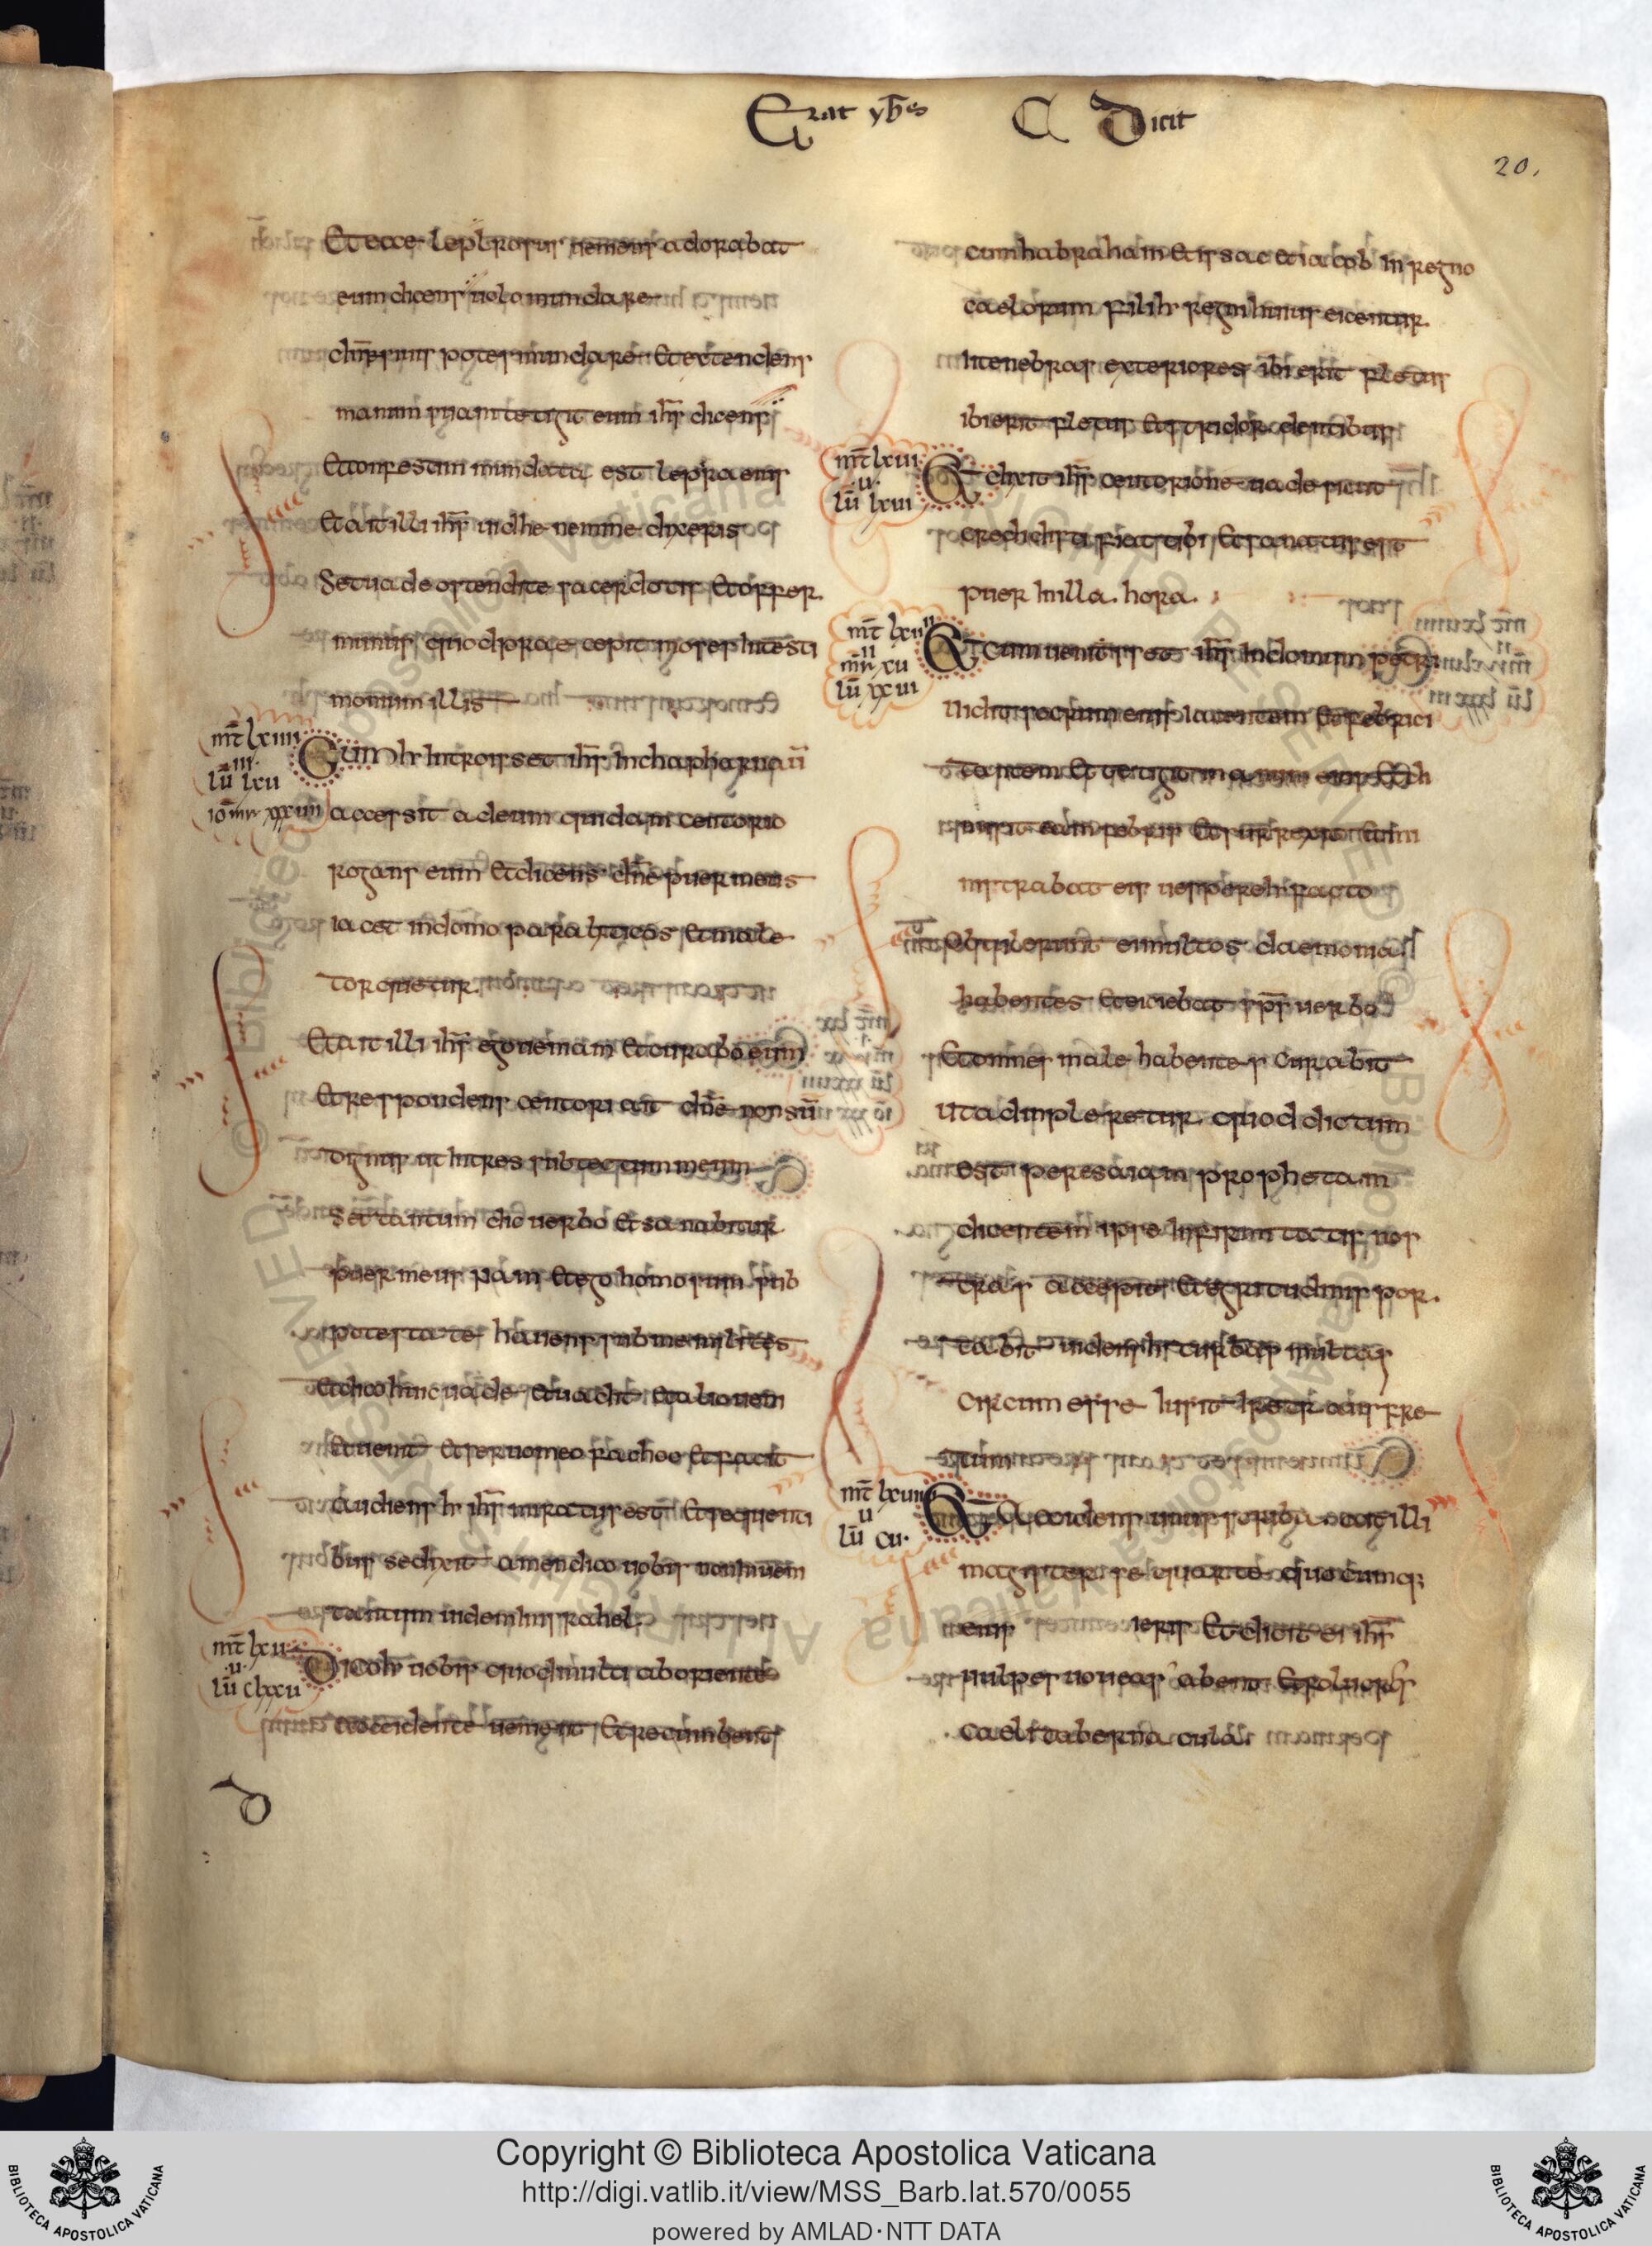 Erat ybes C Dicit
20,
Et ecce leplrosus ueniens adorabat
eum dicens uolo mundare
dn̄e si uis potes mundare Et extendens
manum suam tetigit eum ihs̄ dicens
Et confestim mundata est lepra eius
Et ait illi ihs̄ uidhe nemine dixeris
Set uade ostendite sacerdotis Et offer
munus quod praecepit moses intesti
monium illis
mt̄ lxiiii
iii
lū lxu
Cum h̄ introisset ihs̄ in chapharnaū
accersit ad eum quidam centorio
rogans eum Et dicens dn̄e puer meus
iacet in domo paraliticos Et male
torquetur
Et ait illi ihs̄ ego ueniam Et curabo eum
Et respondens centori ait dn̄e non sū
dignus ut intres sub tectum meum
Set tantum dic uerbo Et sanabitur
puer meus nam Et ego homo sum sub
potestate hauens sub me milites
Et dico huic uade Et uadit Et alio ueni
Et uenit Et seruo meo fac hoc Et facit
audiens h̄ ihs̄ miratus est Et sequenti
bus se dixit amen dico uobis non inueni
tantum fidem in israhel
mt̄ lxu
u
lū clxxu
Dico h̄ uobis quod multi ab oriente
et occidente uenient Et recumbent
cum habraham Et isaac Et iacob in regno
caelorum filih̄ regni huius eicentur
in tenebras exteriores ibi erit fletus
ibi erit fletus Et stridor dentibus
mt̄ lxui
u
lū lxui
Et dixit ihs̄ centorione uade sicut
credidisti fiat tibi Et sanatus est
puer in illa hora
mt̄ lxuii
ii
mr̄ xu
lū xxui
Et cum uenisset ihs̄ in domum petri
uidit socrum eius iacentem Et febrici
tantem Et tetigit manum eius Et di
misit eam febris Et surrexit Et mi
nistrabat eis uespere h̄ facto
obtulerunt ei multos daemonia
habentes Et eiciebat sps̄ uerbo
Et omnes male habentes curabit
ut adimpleretur quod dictum
est per esaiam prophetam
dicentem ipse infirmitatis nos
tras accepit Et egritudinis por
tabit uidens ih̄s turbas multas
circum esse iusit ire trans fre
tum
mt̄ lxuiii
u
lū cu
Et Accidens unus scriba ait illi
magister sequar te quocumq;
ieris Et dicit ei ihs̄
uulpes foueas abent Et uolucris
caeli tabernacula
Copyright © Biblioteca Apostolica Vaticana
http://digi.vatlib.it/view/MSS_Barb.lat.570/0055
powered by AMLAD·NTT DATA
BIBLIOTECA APOSTOLICA VATICANA
BIBLIOTECA APOSTOLICA VATICANA